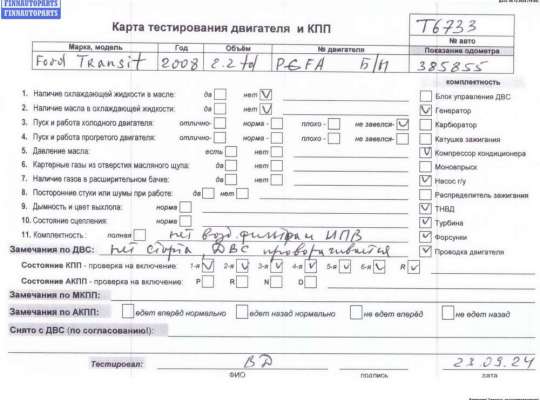 FINNAUTOPARTS
FINNAUTOPARTS
Карта тестирования двигателя и КПП
Т6733
№ авто
Марка, модель Год Объём № двигателя Показание одометра
Ford Transit 2008 2.2 td PGFA Б/Н 385855
комплектность
1. Наличие охлаждающей жидкости в масле: да нет
Блок управления ДВС
2. Наличие масла в охлаждающей жидкости: да нет
Генератор
3. Пуск и работа холодного двигателя: отлично- норма - плохо - не завелся-
Карбюратор
4. Пуск и работа прогретого двигателя: отлично- норма - плохо - не завелся-
Катушке зажигания
5. Давление масла: есть нет
Компрессор кондиционера
6. Картерные газы из отверстия масляного щупа: да нет
Моновпрыск
7. Наличие газов в расширительном бачке: да нет
Насос г/у
8. Посторонние стуки или шумы при работе: да нет
Распределитель зажигания
9. Дымность и цвет выхлопа: норма
ТНВД
10. Состояние сцепления: норма
Турбина
11. Комплектность: полная нет возд. фильтрам ИПВ
Форсунки
Замечания по ДВС: нет старта, ДВС проворачивается
Проводка двигателя
Состояние КПП - проверка на включение: 1-я 2-я 3-я 4-я 5-я 6-я R
Состояние АКПП - проверка на включение: P R N D
Замечания по МКПП:
Замечания по АКПП: едет вперёд нормально едет назад нормально не едет вперед не едет назад
Снято с ДВС (по согласованию!):
Тестировал: ВД 23.09.24
ФИО подпись дата